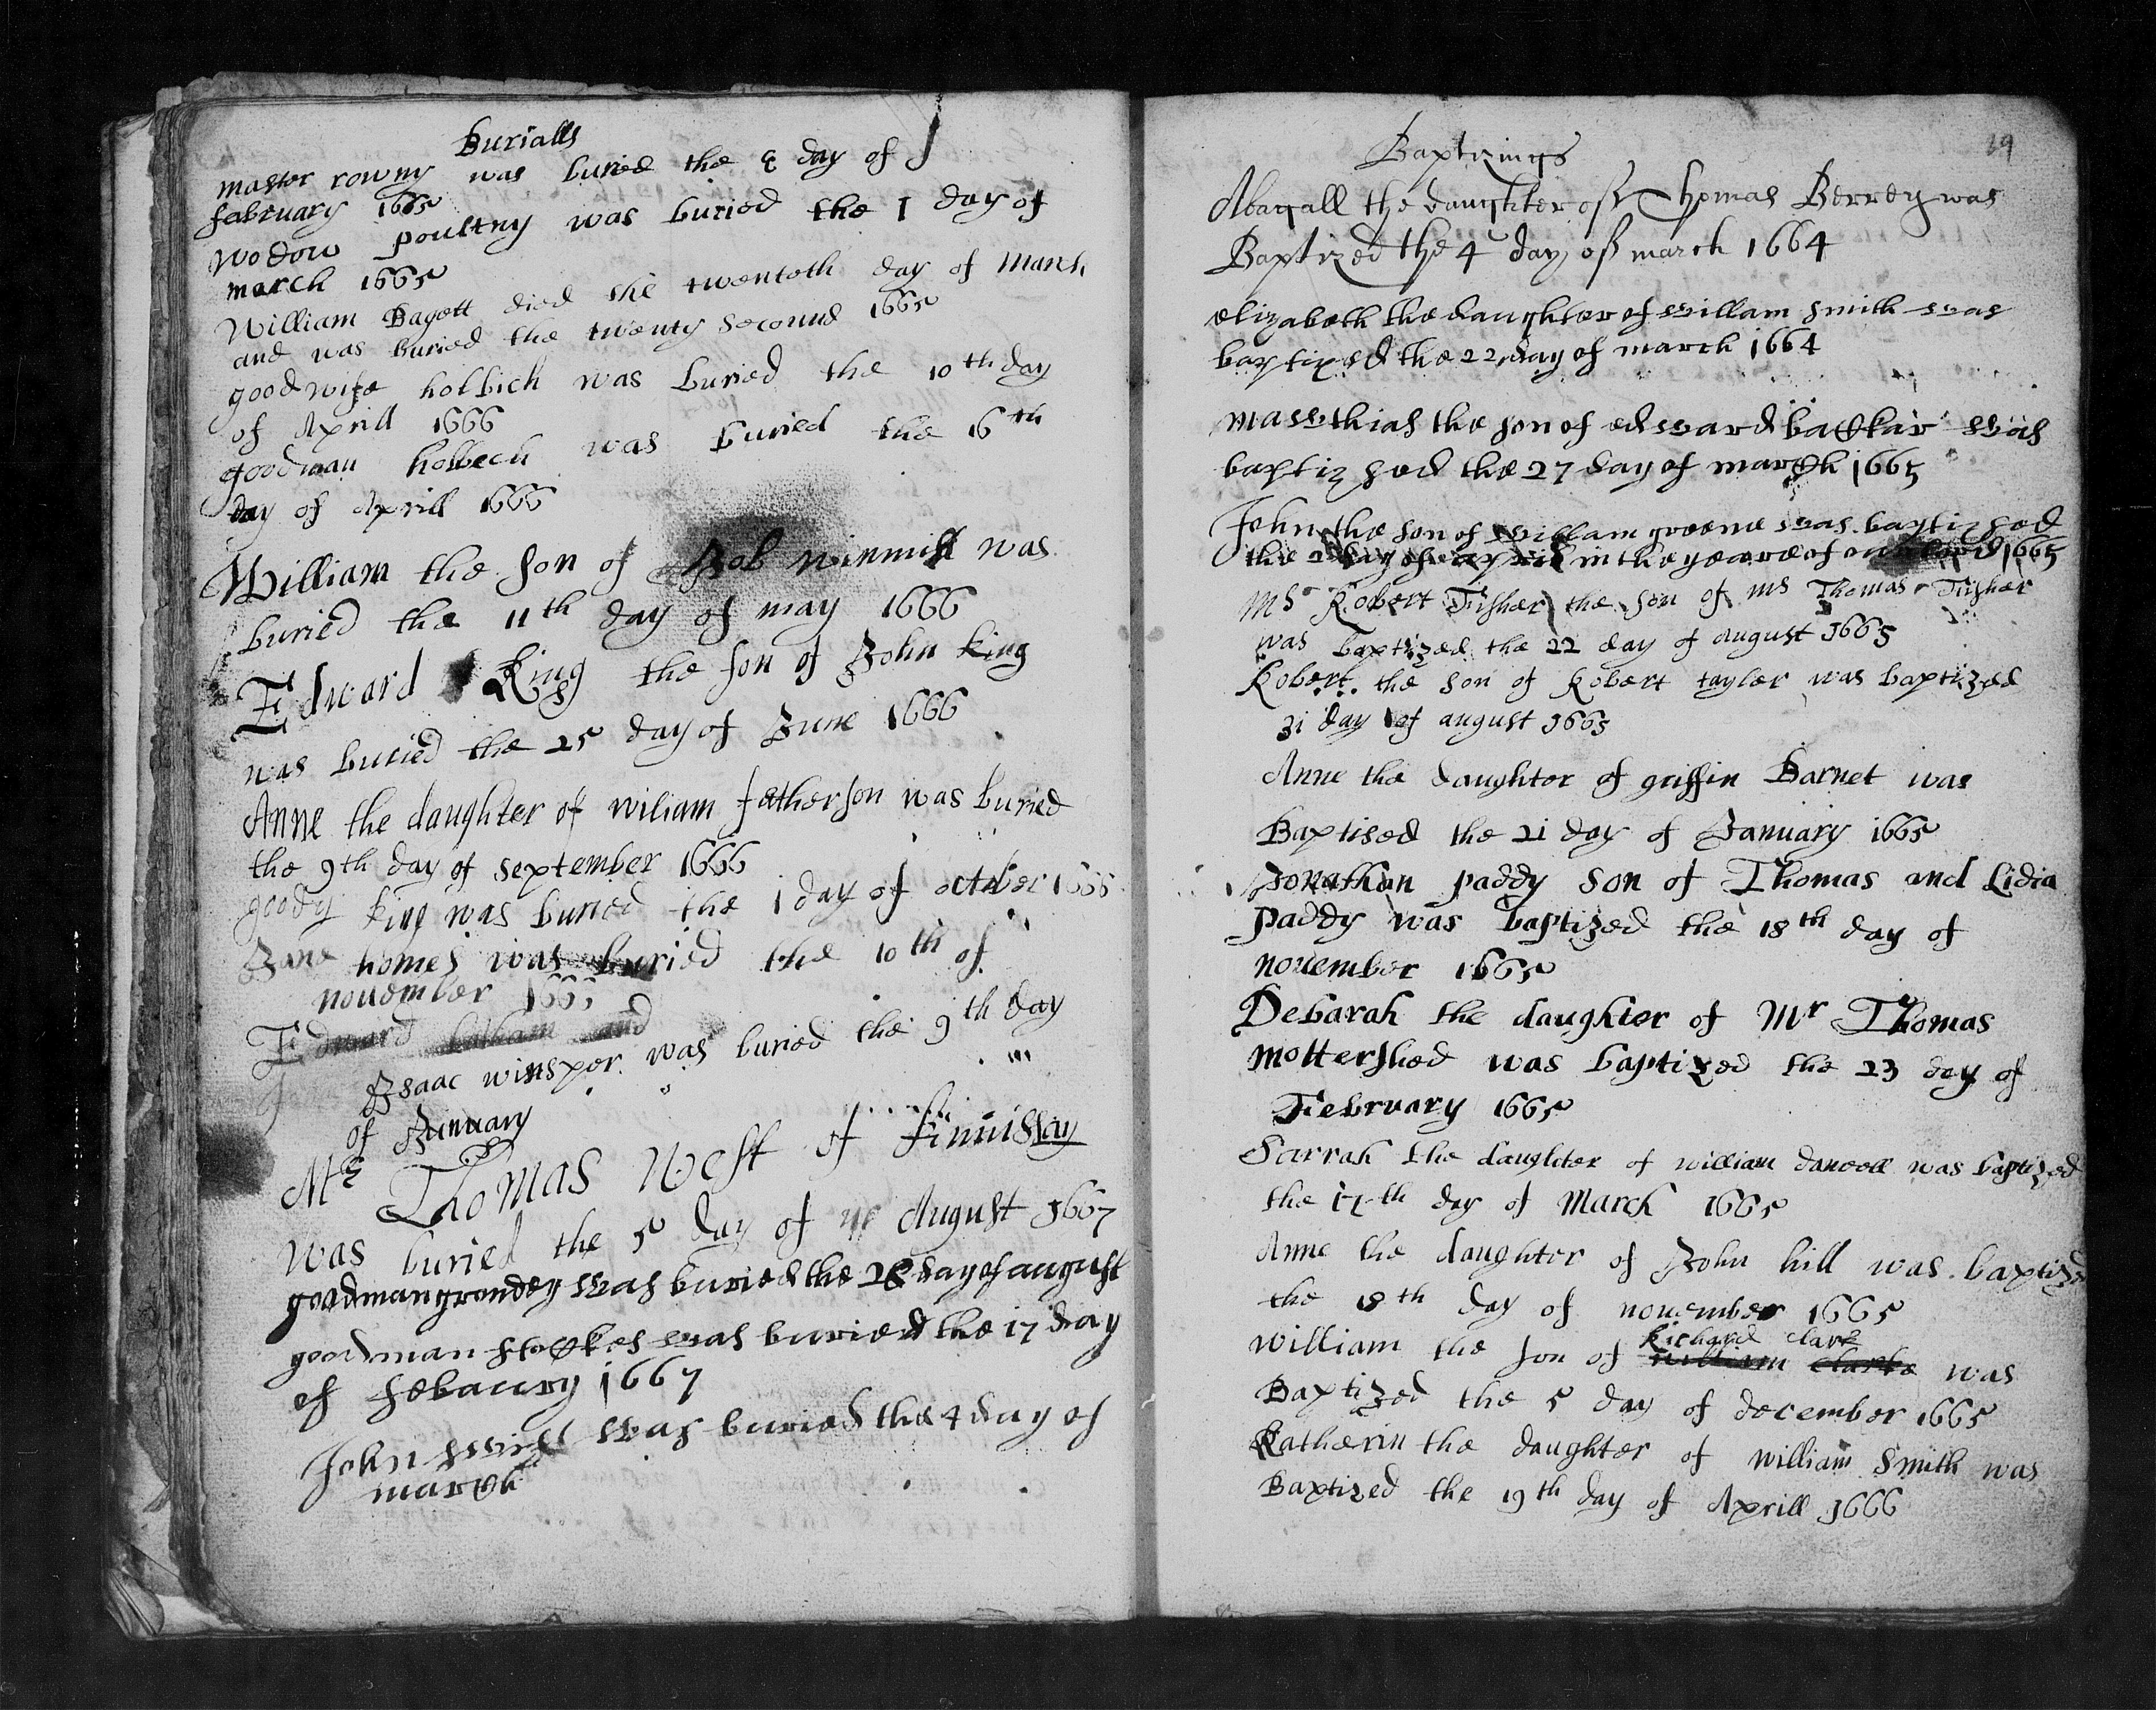 Burialls
master rowny was buried the 8 day of
february 1665
wodow poultny was buried the 1 day of
march 1665
William Bagott died the twentoth day of March
and was buried the twenty second 1665
goodwife holbich was buried the 10th day
of Aprill 1666
goodman holbech was buried the 16th
day of Aprill 1666
William the son of Job winmill was
buried the 11th day of may 1666
Edward King the son of John King
was buried the 25 day of June 1666
Anne the daughter of wiliam fatherson was buried
the 9th day of September 1666
goody King was buried the 1 day of october 1666
Jane homes was buried the 10th of
nouember
Edward and
Isaac winsper was buried the 9th day
of January
Mr Thomas West of
was buried the 5 day of ye August 1667
goodman grondey was buried the day of august
goodman stockes was buried the 17 day
of febaury 1667
John was buried the 4 day of
march
19
Baptizings
Abagall the daughter of Thomas Berrey was
Baptized the 4 day of march 1664
elizabeth the daughter of willam smith was
baptized the 22 day of march 1664
mawthias the son of edward backar was
baptizsed the 27 day of march 1665
John the son of willam greene was baptizsed
the 2 day of april in the yeare of our lord 1665
Mr Robert Fisher the son of mr Thomas Fisher
was baptized the 22 day of august 1665
Robert the son of Robert tayler was baptized
31 day of august 1665
Anne the daughter of griffin Barnet was
Baptised the 21 day of January 1665
Jonathan paddy son of Thomas and Lidia
paddy was baptized the 18th day of
nouember 1665
Debarah the daughter of Mr Thomas
mottershed was baptized the 23 day of
February 1665
Sarrah the daughter of william was baptized
the 17th day of March 1665
Anne the daughter of John hill was baptized
the 18th day of nouember 1665
Richard Clark
william the son of william Clarke was
Baptized the 5 day of december 1665
Katherin the daughter of william Smith was
Baptized the 19th day of Aprill 1666